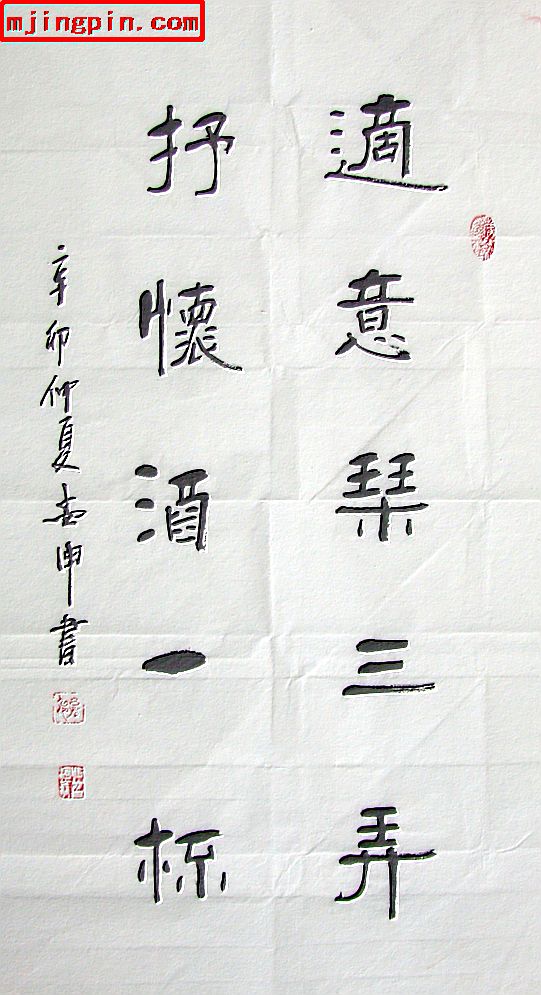 mjingpin.com
適意琹三弄
抒懷酒一杯
辛卯仲夏申書